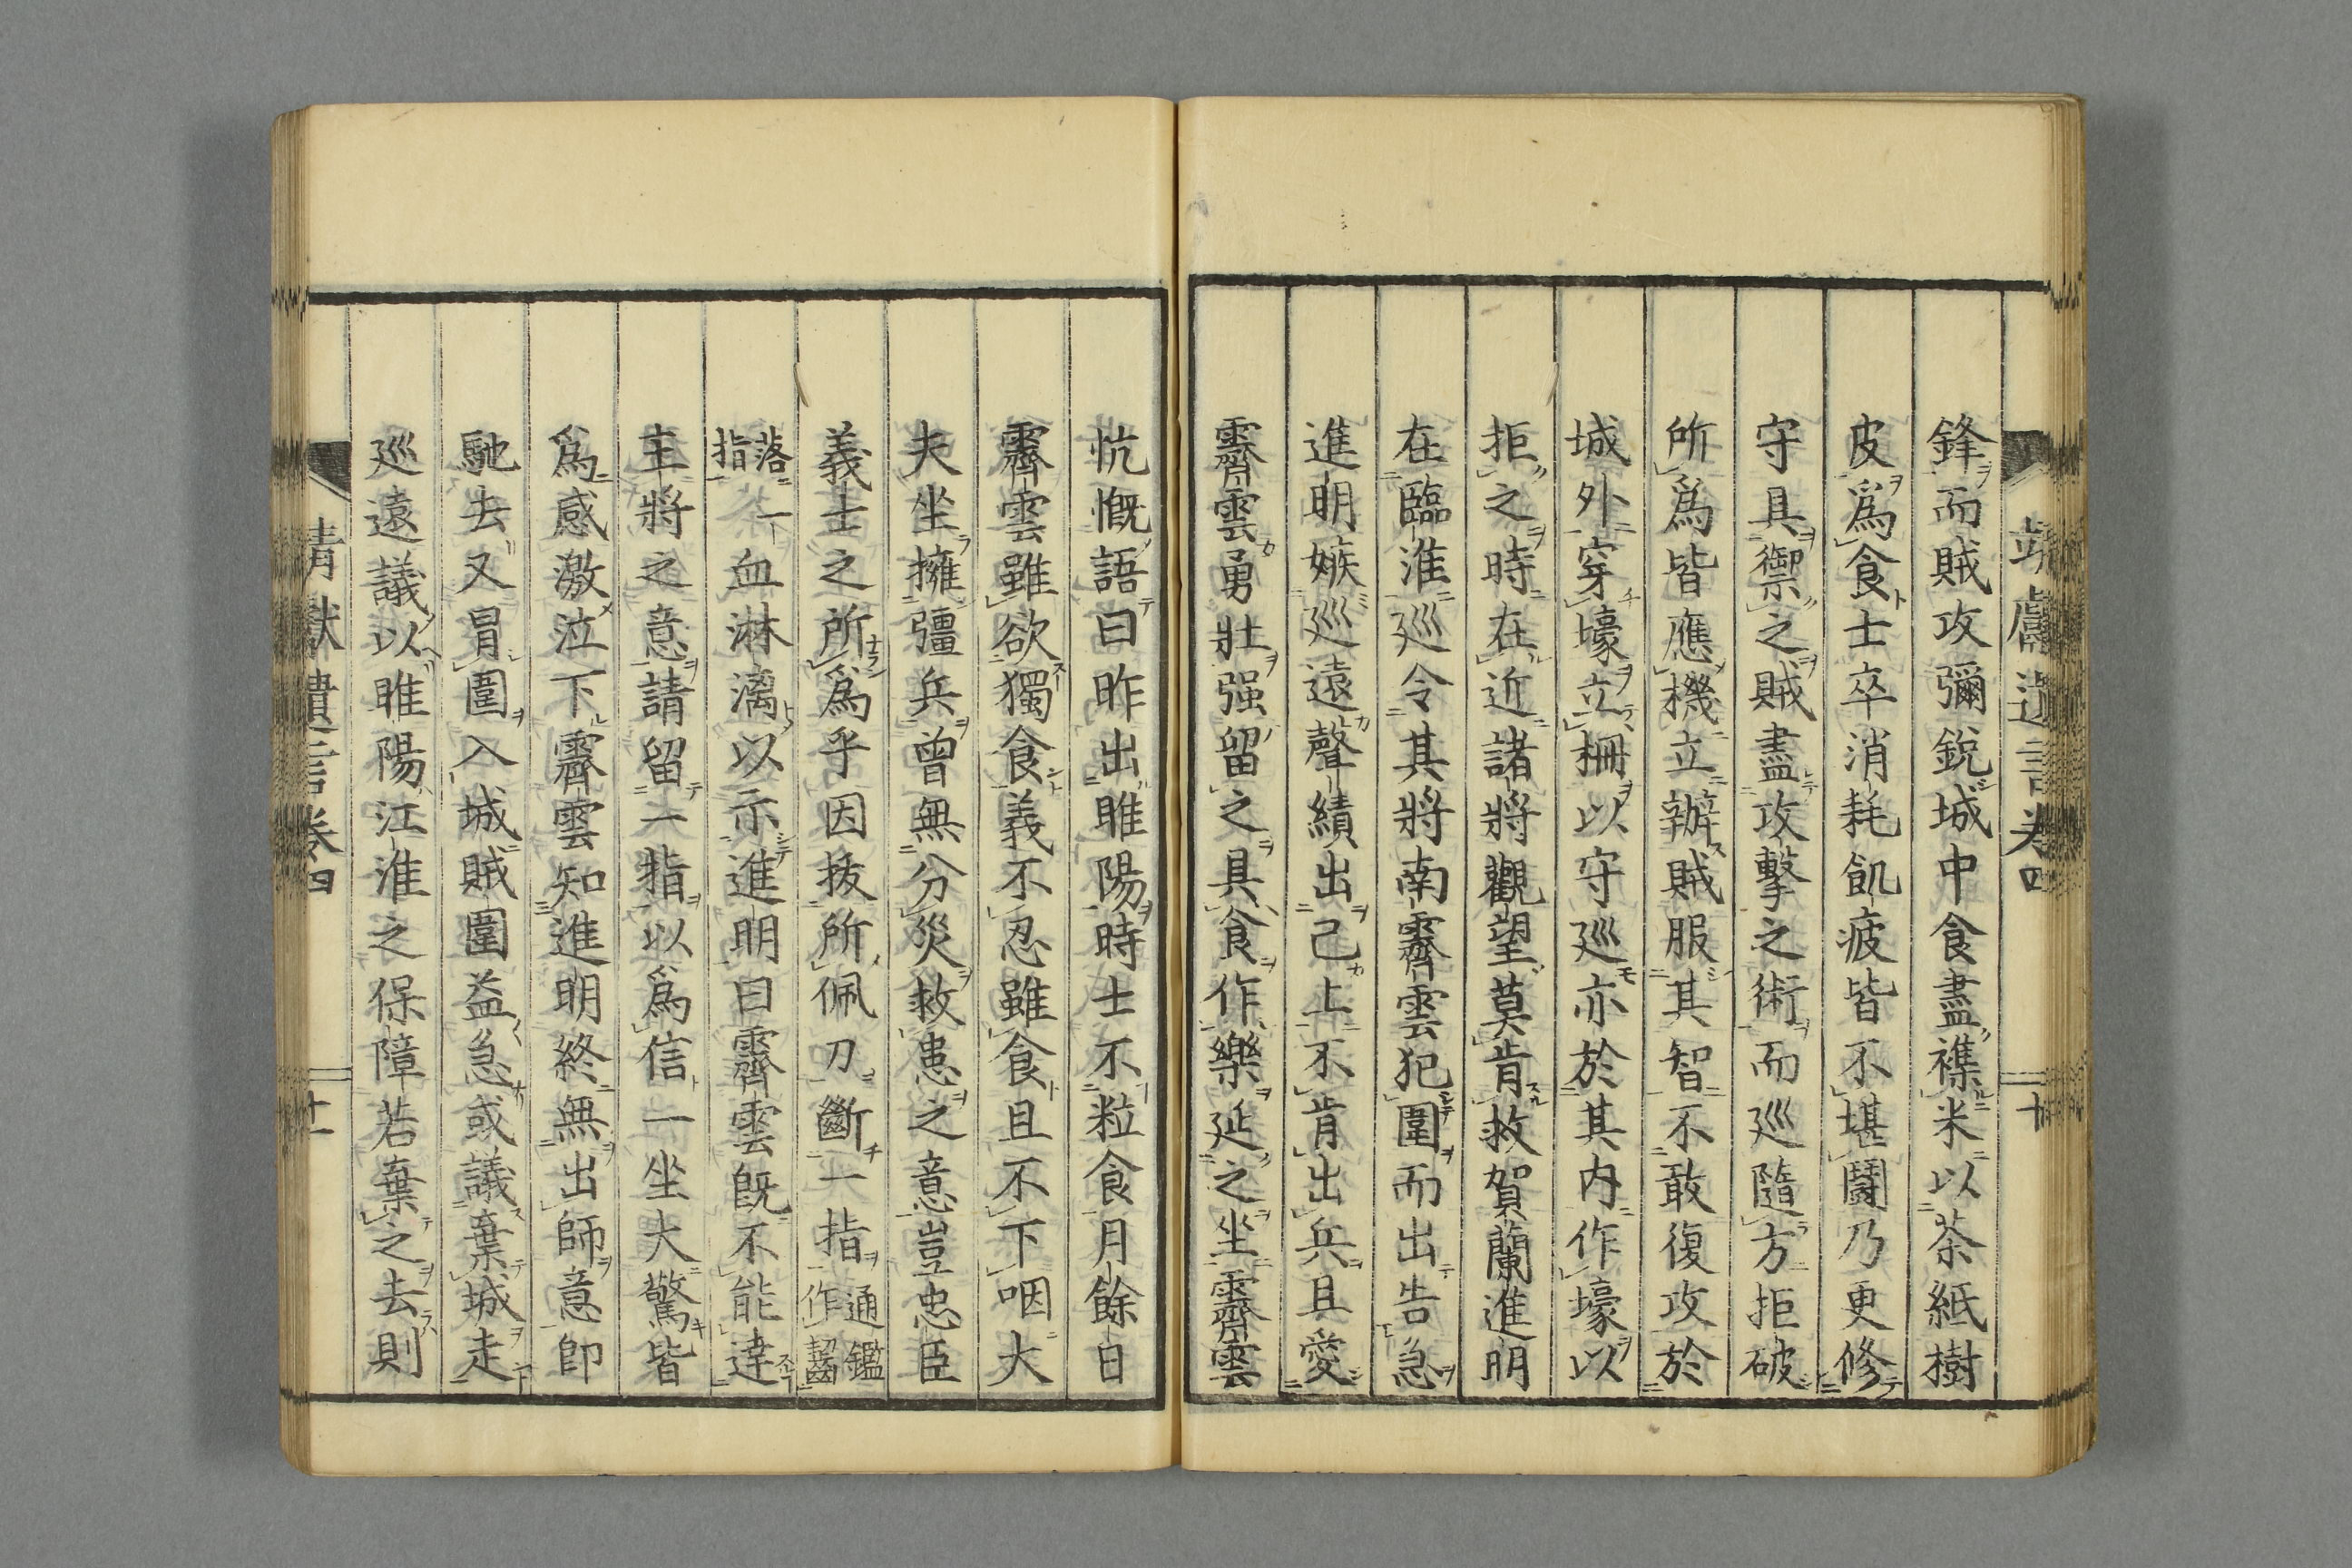 鋒而賊攻彌鋭城中食盡襍米以茶紙樹
皮爲食士卒消耗飢疲皆不堪鬪乃更修
守具禦之賊盡攻擊之術而巡隨方拒破
所爲皆應機立辦賊服其智不敢復攻於
城外穿壕立柵以守巡亦於其内作壕以
拒之時在近諸將觀望莫肯救賀蘭進明
在臨淮巡令其將南霽雲犯圍而出告急
進明嫉巡遠聲績出己上不肯出兵且愛
霽雲勇壯强留之具食作樂延之坐霽雲
忼慨語曰昨出睢陽時士不粒食月餘日
霽雲雖欲獨食義不忍雖食且不下咽大
夫坐擁彊兵曾無分災救患之意豈忠臣
義士之所爲乎因抜所佩刀斷一指通鑑作齧
落指一血淋漓以示進明曰霽雲既不能達
主將之意請留一指以爲信一坐大驚皆
爲感激泣下霽雲知進明終無出師意即
馳去又冒圍入城賊圍益急或議棄城走
巡遠議以睢陽江淮之保障若棄之去則
靖獻遺言卷四 十一